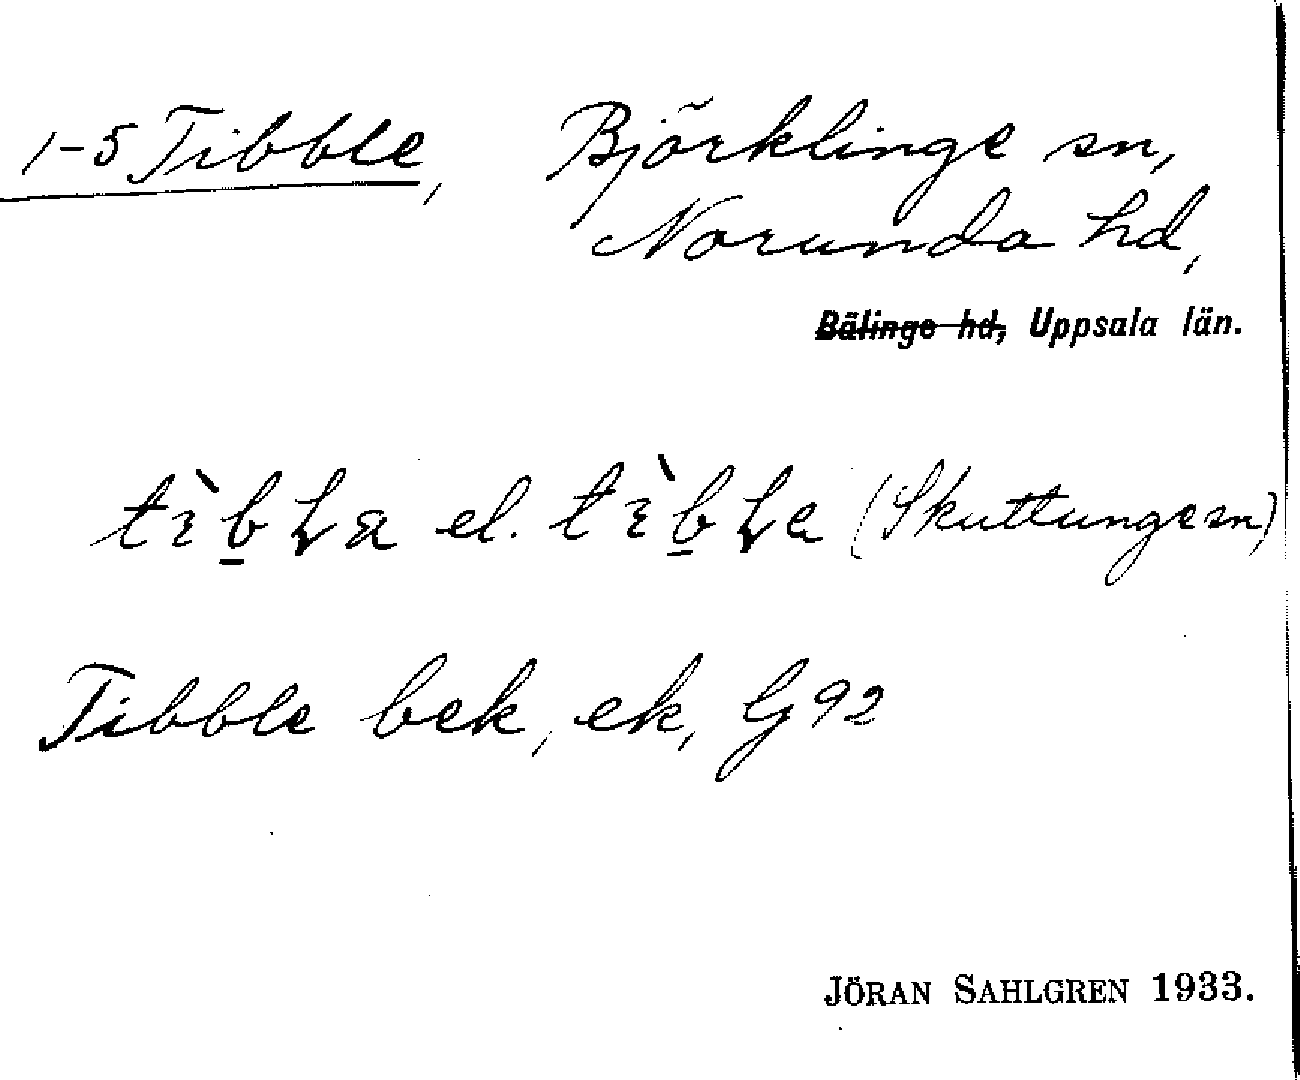 1-5 Tibble, Björklinge sn,
Norunda hd,
Bälinge hd, Uppsala län.
el. (Skuttungesn)
Tibble bek, ek, G 92
JÖRAN SAHLGREN 1933.